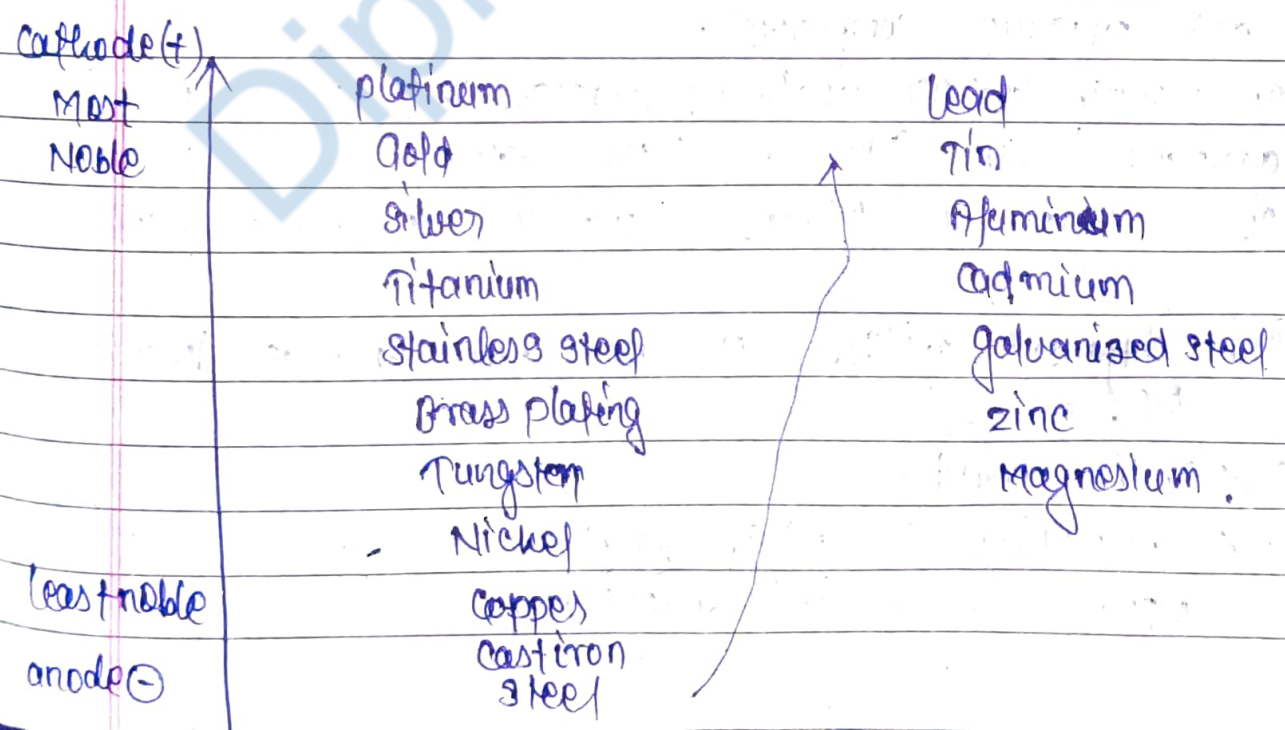 Cathode (+)
Most
Noble
platinum
Gold
Silver
Titanium
Stainless steel
Brass plating
Tungsten
Nickel
least noble
anode ⊖
Copper
Cast iron
steel
lead
Tin
Aluminium
Cadmium
galvanized steel
zinc
Magnesium.
Dip